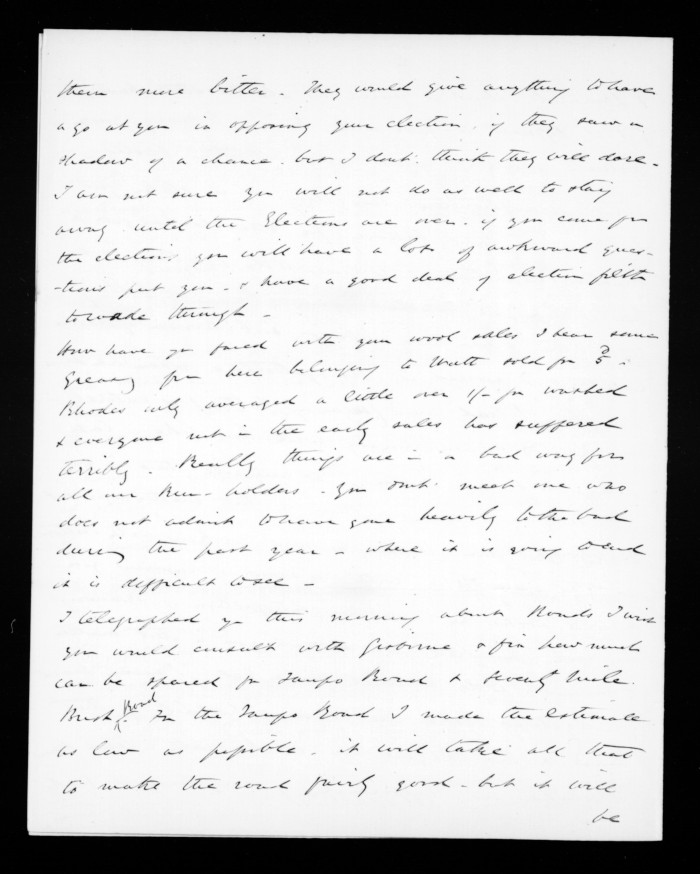 them more bitter. They would give anything to have
a go at you in opposing your election, if they saw a
shadow of a chance. but I dont think they will dare.
I am not sure you will not do as well to stay
away until the Elections are over. if you come for
the elections you will have a lots of awkward ques-
-tions put you. & have a good deal of election filth
to wade through -
How have you fared with your wool sales I hear some
Greasy from here belonging to Watt sold for 5d.
Rhodes only averaged a little over 1/- for washed
& everyone not in the early sales has suffered
terribly. Really things are in a bad way for
all our Run-holders. You dont meet one who
does not admit to have gone heavily to the bad
during the past year - where it is going to end
it is difficult to see -
I telegraphed you this morning about Roads I wish
you would consult with Gisborne & fix how much
can be spared for Taupo Road & Seventy Mile
Bush Road. For the Taupo Road I made the estimate
as low as possible. it will take all that
to make the road fairly good - but it will
be